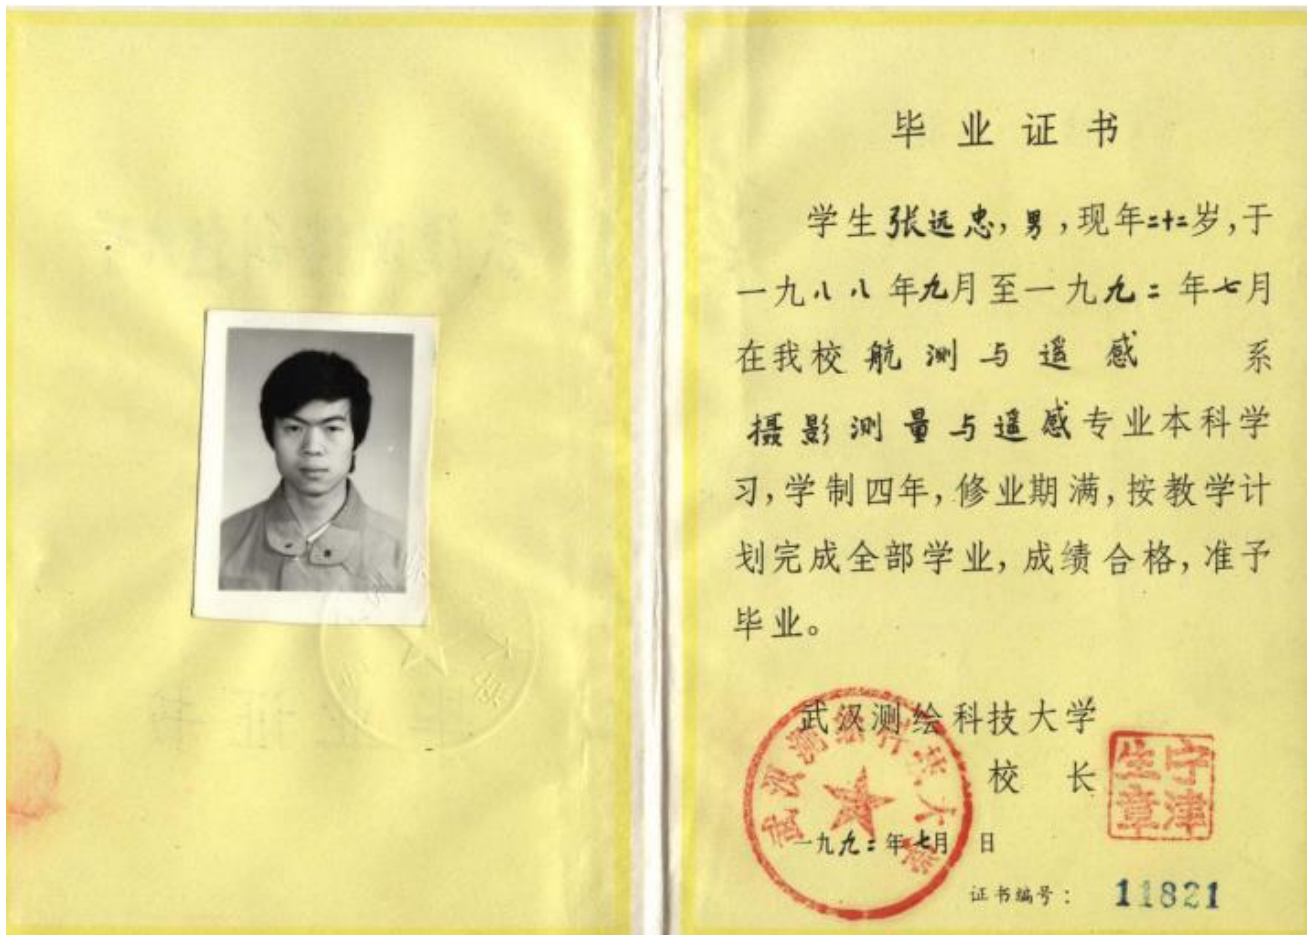 毕业证书
学生张远忠，男，现年二十二岁，于
一九八八年九月至一九九二年七月
在我校航测与遥感 系
摄影测量与遥感专业本科学
习，学制四年，修业期满，按教学计
划完成全部学业，成绩合格，准予
毕业。
武汉测绘科技大学
校长
宁津生章
武汉测绘科技大学
一九九二年七月 日
证书编号： 11821